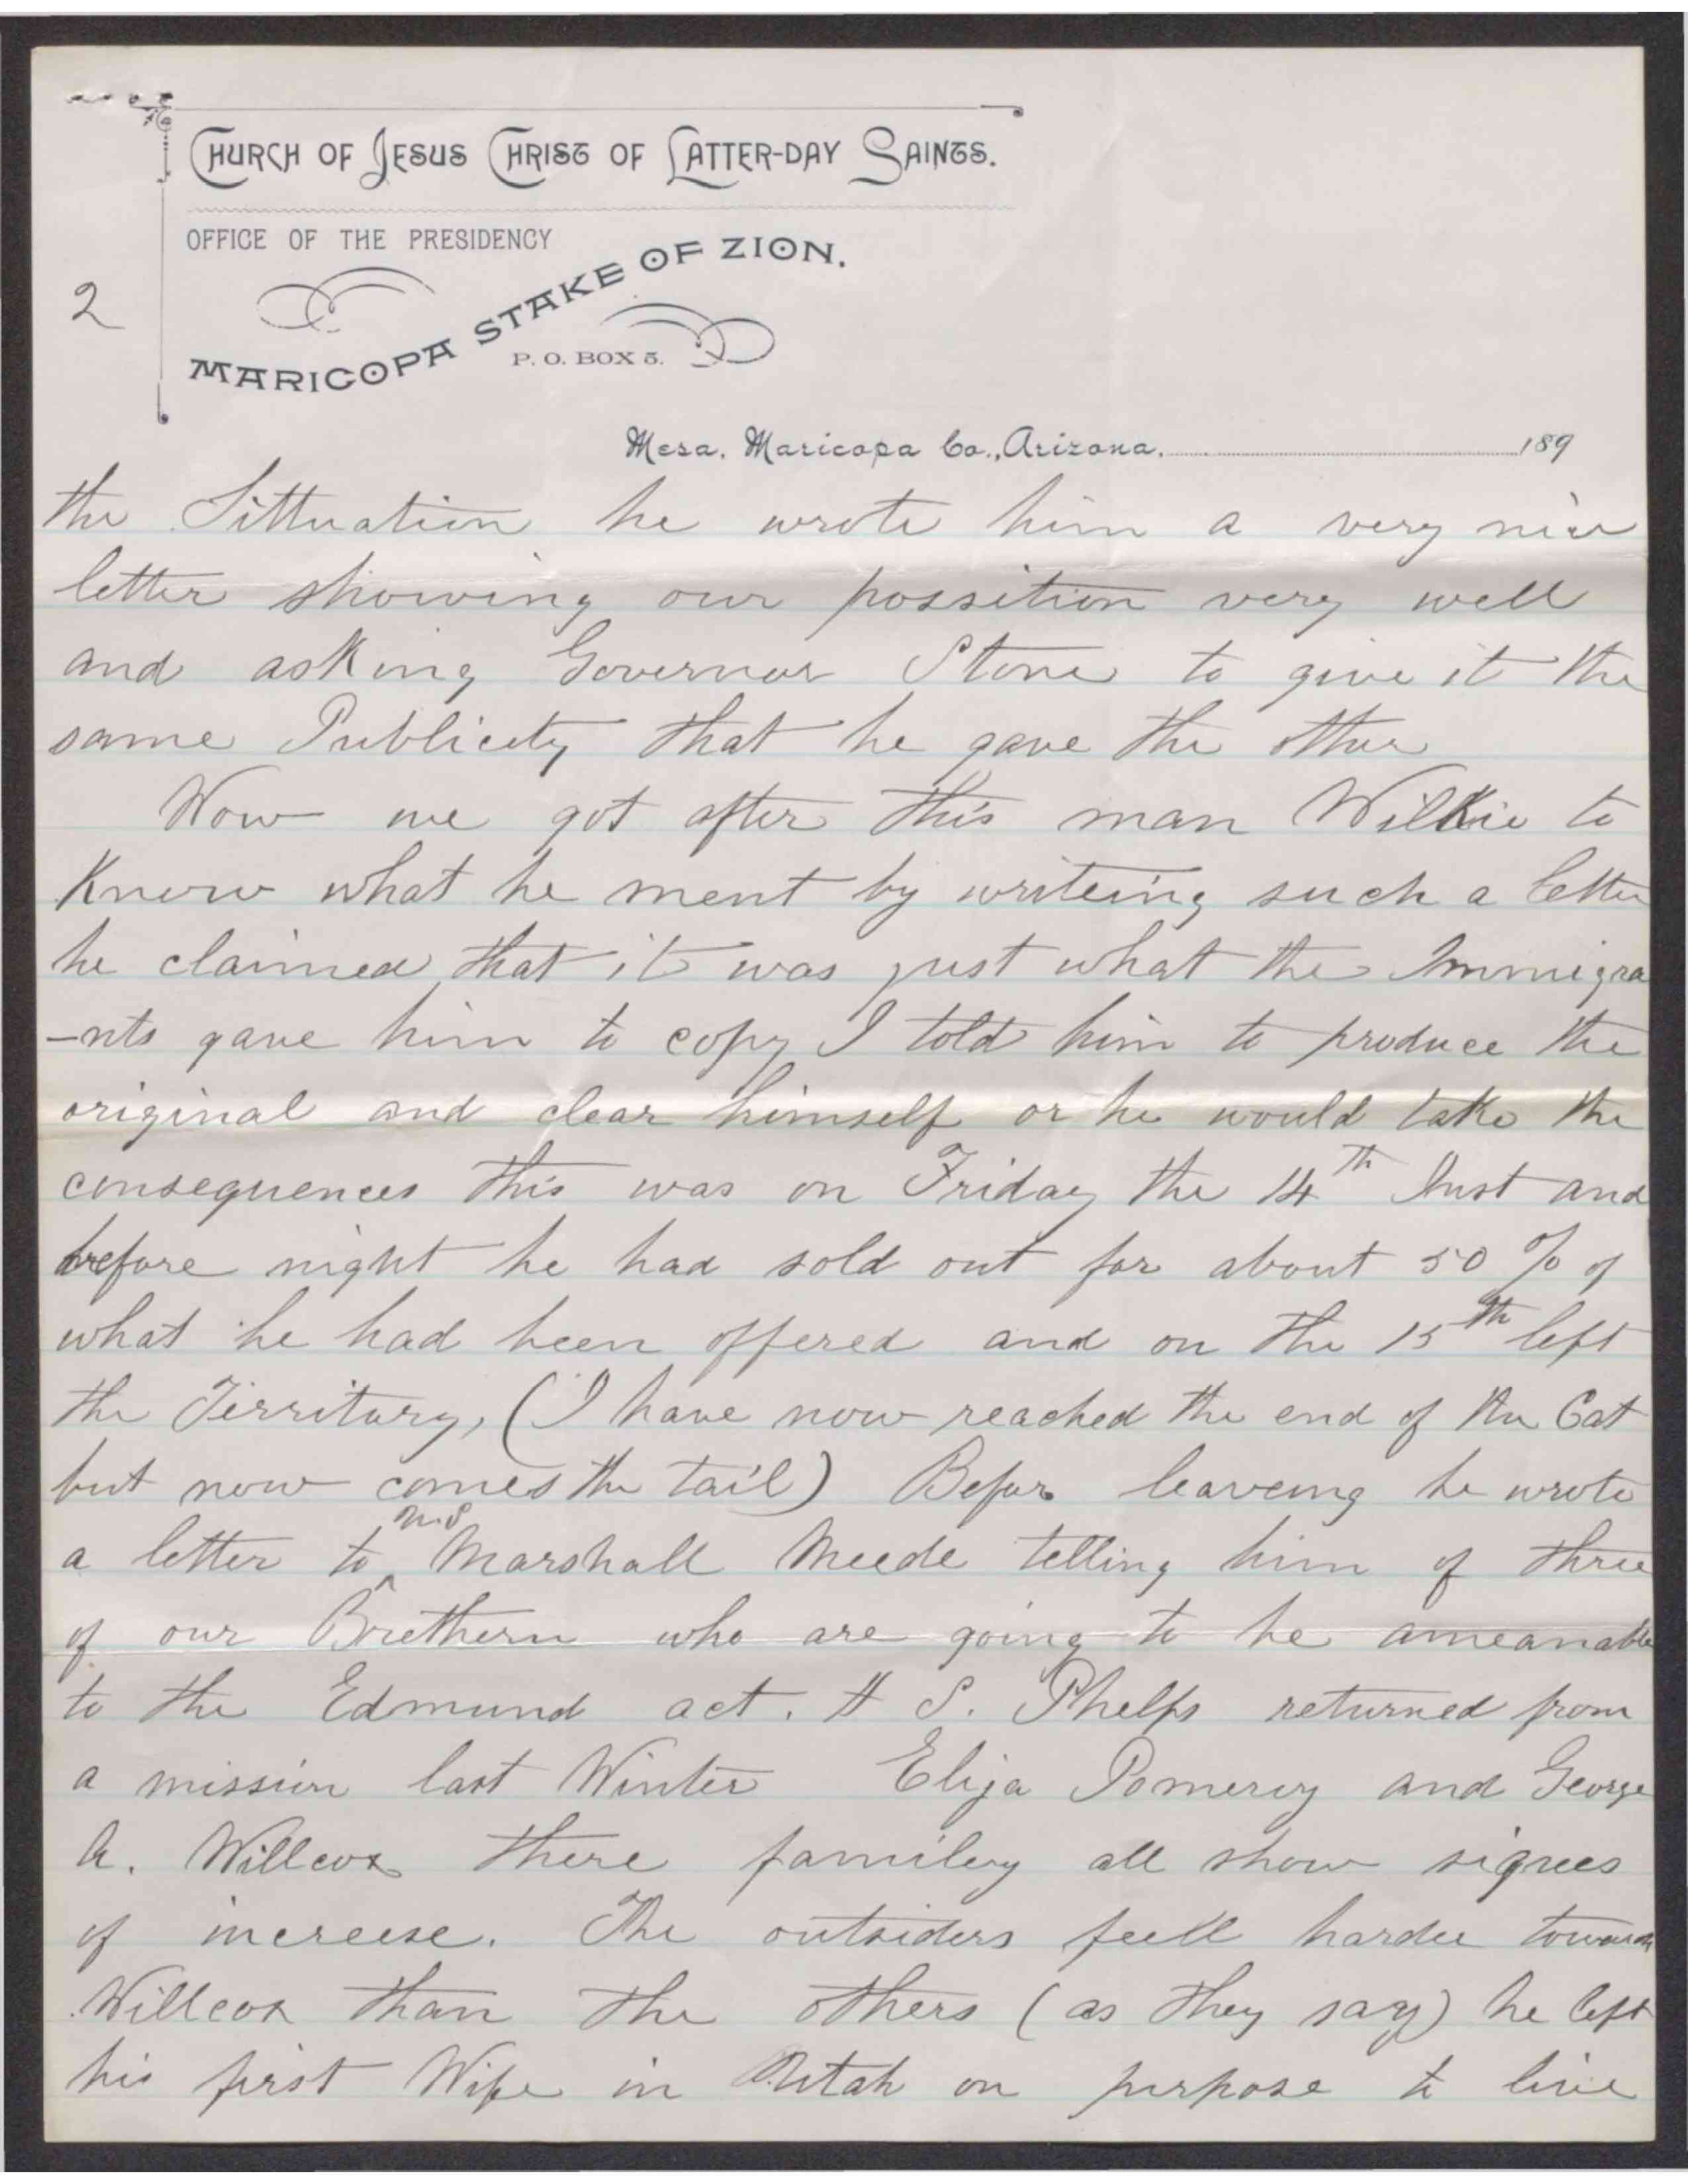 CHURCH OF JESUS CHRIST OF LATTER-DAY SAINTS.
OFFICE OF THE PRESIDENCY
MARICOPA STAKE OF ZION.
P. O. BOX 5.
2
Mesa, Maricopa Co., Arizona, 189
the Sittuation he wrote him a very nice
letter showing our possition very well
and asking Governor Stone to give it the
same Publicity that he gave the other
Now we got after this man Wilkie to
Know what he ment by writeing such a letter
he claimed that it was just what the Immigra
-nts gave him to copy I told him to produce the
original and clear himself or he would take the
consequences this was on Friday the 14th Inst and
before night he had sold out for about 50 % of
what he had been offered and on the 15th left
the Territory, (I have now reached the end of the Cat
but now comes the tail) Befor leaveing he wrote
a letter to U.S. Marshall Meede telling him of three
of our Brethern who are going to be ameanable
to the Edmund act. H S. Phelps returned from
a mission last Winter Elija Pomeroy and George
A. Willcox there familey all show signes
of increese. The outsiders feell harder towards
Willcox than the others (as they say) he left
his first Wife in Utah on purpose to live